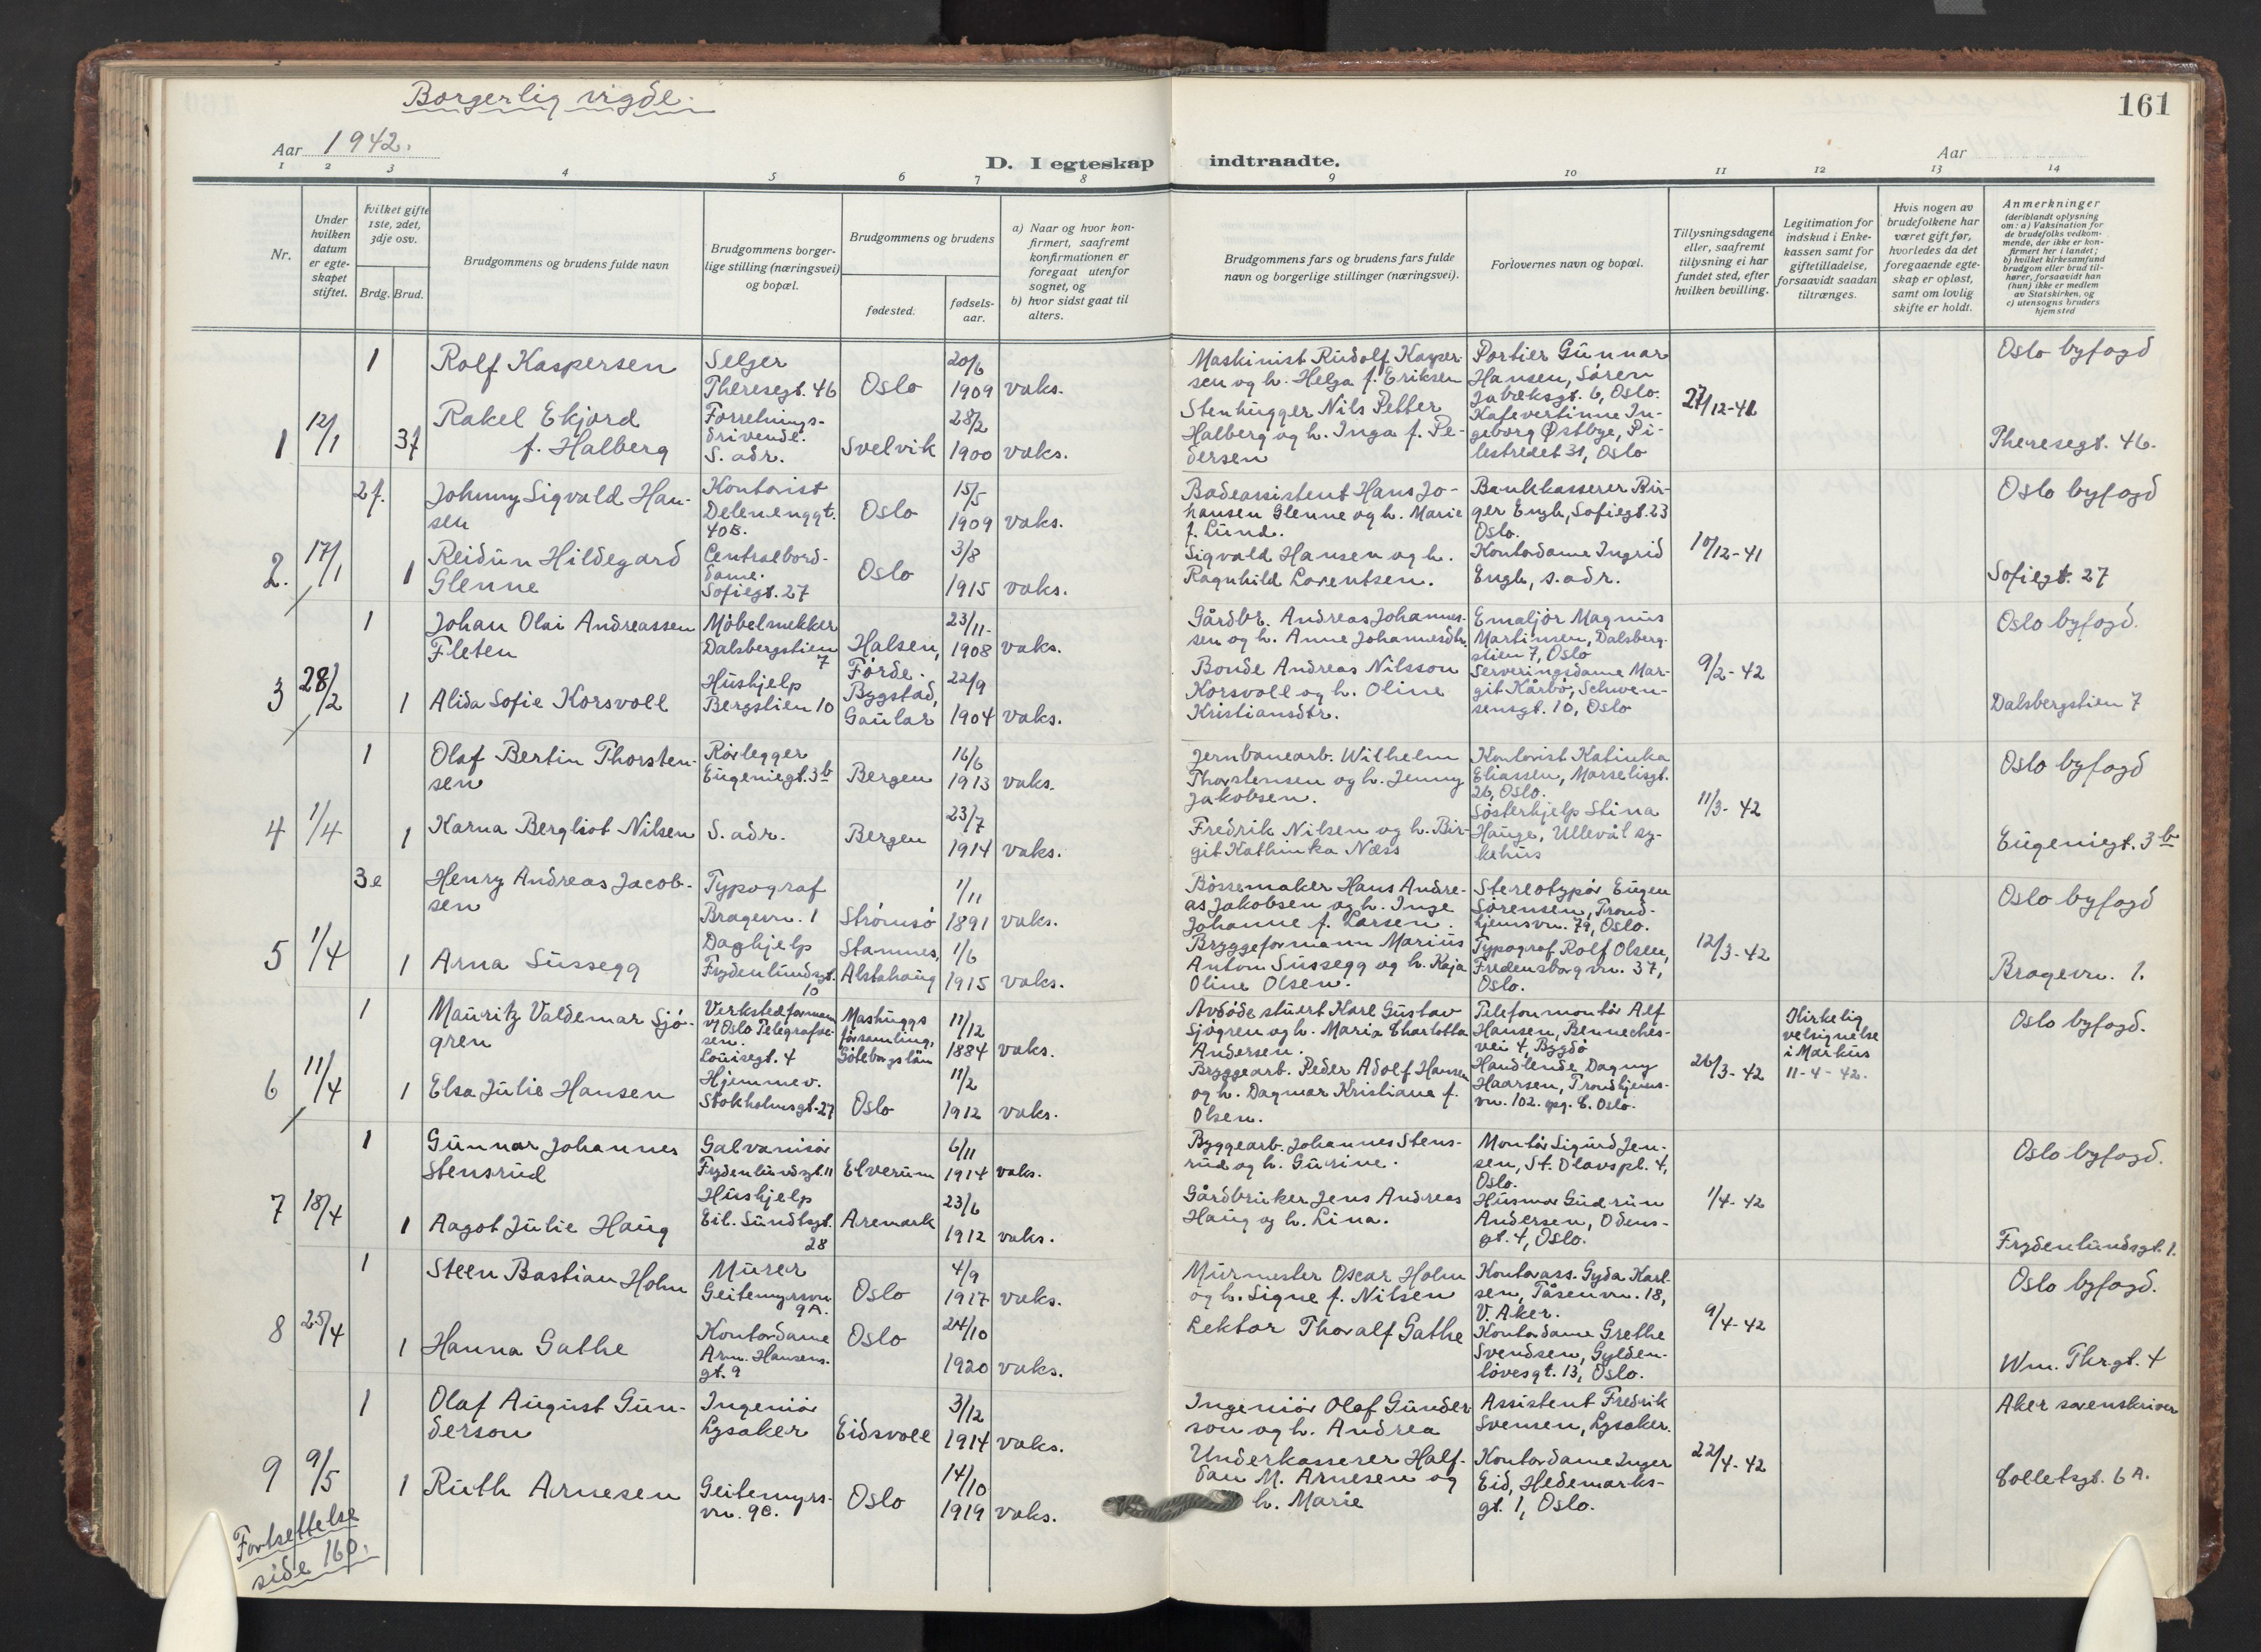 Borgerlig vigde.
161
Aar 1942.
Aar
D. I egteskap indtraadte.
1 2 3 4 5 6 7 8 9 10 11 12 13 14
Nr.
Under hvilken datum er egteskapet stiftet.
Hvilket gifte 1ste, 2det, 3dje osv.
Brdg. Brud.
Brudgommens og brudens fulde navn
Brudgommens borgerlige stilling (næringsvei) og bopæl.
Brudgommens og brudens
fødested.
fødselsaar.
a) Naar og hvor konfirmert, saafremt konfirmationen er foregaat utenfor sognet, og
b) hvor sidst gaat til alters.
Brudgommens fars og brudens fars fulde navn og borgerlige stillinger (næringsvei).
Forlovernes navn og bopæl.
Tillysningsdagene eller, saafremt tillysning ei har fundet sted, efter hvilken bevilling.
Legitimation for indskud i Enkekassen samt for giftetilladelse, forsaavidt saadan tiltrænges.
Hvis nogen av brudefolkene har været gift før, hvorledes da det foregaaende egteskap er opløst, samt om lovlig skifte er holdt.
Anmerkninger
(deriblandt oplysning om: a) Vaksination for de brudefolks vedkommende, der ikke er konfirmert her i landet;
b) hvilket kirkesamfund brudgom eller brud tilhører, forsaavidt han (hun) ikke er medlem av Statskirken, og
c) utensogns bruders hjemsted
1 12/1
1 Rolf Kaspersen
Selger
Theresegt. 46
Oslo
20/6
1909 vaks.
Maskinist Rudolf Kasper-
sen og h. Helga f. Eriksen
Portier Gunnar
Hansen, Søren
Jabæksgt. 6, Oslo.
27/12-41
Oslo byfogd
3f Rakel Ekjord
f. Halberg
Forretnings-
drivende.
S. adr.
Svelvik
28/2
1900 vaks.
Stenhugger Nils Petter
Halberg og h. Inga f. Pe-
dersen
Kafevertinne In-
geborg Østbye, Pi-
lestredet 31, Oslo
Theresegt. 46.
2. 17/1
2f. Johnny Sigvald Han-
sen
Kontorist
Delenenggt.
40B.
Oslo
15/5
1909 vaks.
Badeassistent Hans Jo-
hansen Glenne og h. Marie
f. Lund.
Bankkasserer Bir-
ger Engh, Sofiegt. 23
Oslo.
10/12-41
Oslo byfogd
1 Reidun Hildegard
Glenne
Centralbord-
dame.
Sofiegt. 27
Oslo
3/8
1915 vaks.
Sigvald Hansen og h.
Ragnhild Lorentsen.
Kontordame Ingrid
Engh, s. adr.
Sofiegt. 27
3 28/2
1 Johan Olai Andreassen
Fleten
Møbelsnekker
Dalsbergstien
7
Halsen,
Førde.
23/11-
1908 vaks.
Gårdbr. Andreas Johannes-
sen og h. Anne Johannesdtr.
Emaljør Magnus
Martinsen, Dalsberg-
stien 7, Oslo
9/2-42
Oslo byfogd.
1 Alida Sofie Korsvoll
Hushjelp
Bergstien 10
Bygstad,
Gaular
22/9
1904 vaks.
Bonde Andreas Nilsson
Korsvoll og h. Oline
Kristiansdtr.
Serveringsdame Mar-
git Kårbø, Schwen-
sensgt. 10, Oslo
Dalsbergstien 7
4 1/4
1 Olaf Bertin Thorsten-
sen
Rørlegger
Eugeniegt. 3b
Bergen
16/6
1913 vaks.
Jernbanearb. Wilhelm
Thorstensen og h. Jenny
Jakobsen.
Kontorist Katinka
Eliassen, Marselisgt.
26, Oslo.
11/3-42
Oslo byfogd
1 Karna Bergliot Nilsen
S. adr.
Bergen
23/7
1914 vaks.
Fredrik Nilsen og h. Bir-
git Kathinka Næss
Søsterhjelp Stina
Hauge, Ullevål sy-
kehus
Eugeniegt. 3b
5 1/4
3e Henry Andreas Jacob-
sen
Typograf
Bragevn. 1
Strømsø
1/11
1891 vaks.
Bøssemaker Hans Andre-
as Jakobsen og h. Inge
Johanne f. Larsen.
Stereotypør Eugen
Sørensen, Trond-
hjemsvn. 79, Oslo.
12/3-42
Oslo byfogd
1 Arna Sussegg
Daghjelp
Frydenlundsgt.
10
Stamnes,
Alstahaug
1/6
1915 vaks.
Bryggeformann Marius
Anton Sussegg og h. Kaja
Oline Olsen.
Typograf Rolf Olsen,
Fredensborgvn. 37,
Oslo.
Bragevn. 1.
6 11/4
1 Mauritz Valdemar Sjö-
gren
Verkstedformann
v/ Oslo Telegrafve-
sen.
Louisegt. 4
Masthuggs
församling,
Göteborgs län
11/12
1884 vaks.
Avdøde stuert Karl Gustav
Sjögren og h. Maria Charlotta
Andersen.
Telefonmontør Alf
Hansen, Benneches-
vei 4, Bygdø
26/3-42
Kirkelig
velsignelse
i Markus
11-4-42.
Oslo byfogd.
1 Elsa Julie Hansen
Hjemmev.
Stokholmsgt. 27
Oslo
11/2
1912 vaks.
Bryggearb. Peder Adolf Hansen
og h. Dagmar Kristiane f.
Olsen.
Handlende Dagny
Haarsen, Trondhjems-
vn. 102. opg. C. Oslo.
7 18/4
1 Gunnar Johannes
Stensrud
Galvanisør
Frydenlundsgt. 11
Elverum
6/11
1914 vaks.
Byggearb. Johannes Stens-
rud og h. Gurine.
Montør Sigurd Jen-
sen, St. Olavs pl. 4,
Oslo.
1/4-42
Oslo byfogd.
1 Aagot Julie Haug
Hushjelp
Eil. Sundtsgt.
28
Aremark
23/6
1912 vaks.
Gårdbruker Jens Andreas
Haug og h. Lina.
Husmor Gudrun
Andersen, Odens-
gt. 4, Oslo.
Frydenlundsgt. 1.
8 25/4
1 Steen Bastian Holm
Murer
Geitemyrsvn.
9A.
Oslo
4/9
1917 vaks.
Murmester Oscar Holm
og h. Signe f. Nilsen
Kontorass. Gyda Karl-
sen, Tåsenvn. 18,
V. Aker.
9/4-42
Oslo byfogd.
1 Hanna Gathe
Kontordame
Arm. Hansens.
gt. 9
Oslo
24/10
1920 vaks.
Lektor Thoralf Gathe
Kontordame Grethe
Svendsen, Gylden-
løvesgt. 13, Oslo.
Wm. Thrgt. 4
9 9/5
1 Olaf August Gun-
derson
Ingeniør
Lysaker
Eidsvoll
3/12
1914 vaks.
Ingeniør Olaf Gunder
son og h. Andrea
Assistent Fredrik
Svensen, Lysaker.
22/4-42
Aker sorenskriver
1 Ruth Arnesen
Geitemyrs-
vn. 9C.
Oslo
14/10
1919 vaks.
Underkasserer Half-
dan M. Arnesen og
h. Marie
Kontordame Inger
Eid, Hedemarks-
gt. 1, Oslo.
Colletsgt. 6A.
Fortsettelse
side 160.